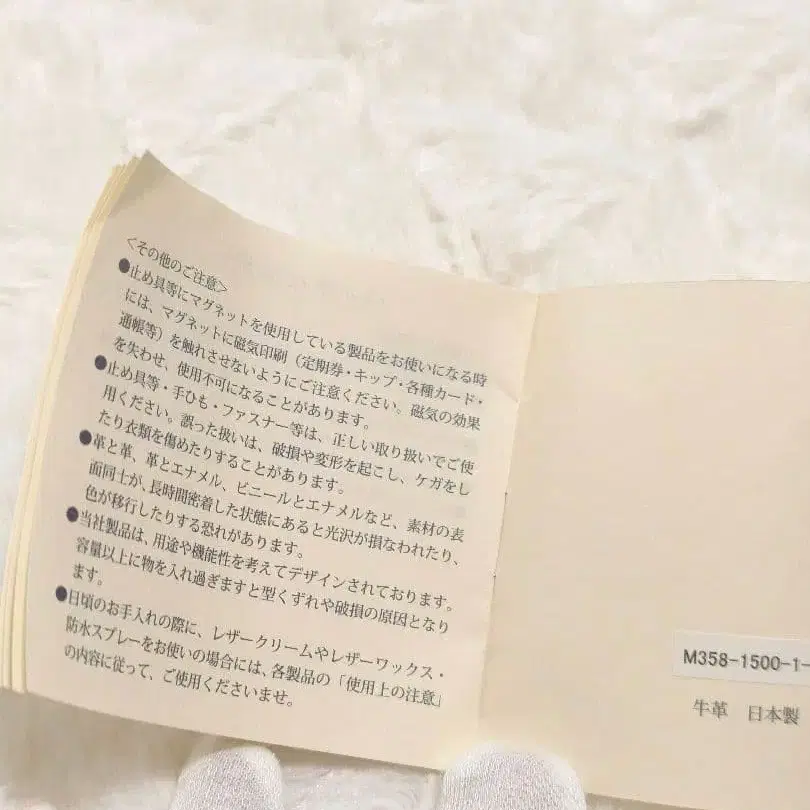 ＜その他のご注意＞
●止め具等にマグネットを使用している製品をお使いになる時
には、マグネットに磁気印刷（定期券・キップ・各種カード・
通帳等）を触れさせないようにご注意ください。磁気の効果
を失わせ、使用不可になることがあります。
●止め具等・手ひも・ファスナー等は、正しい取り扱いでご使
用ください。誤った扱いは、破損や変形を起こし、ケガをし
たり衣類を傷めたりすることがあります。
●革と革、革とエナメル、ビニールとエナメルなど、素材の表
面同士が、長時間密着した状態にあると光沢が損なわれたり、
色が移行したりする恐れがあります。
●当社製品は、用途や機能性を考えてデザインされております。
容量以上に物を入れ過ぎますと型くずれや破損の原因となり
ます。
●日頃のお手入れの際に、レザークリームやレザーワックス・
防水スプレーをお使いの場合には、各製品の「使用上の注意」
の内容に従って、ご使用くださいませ。
M358-1500-1-
牛革　日本製